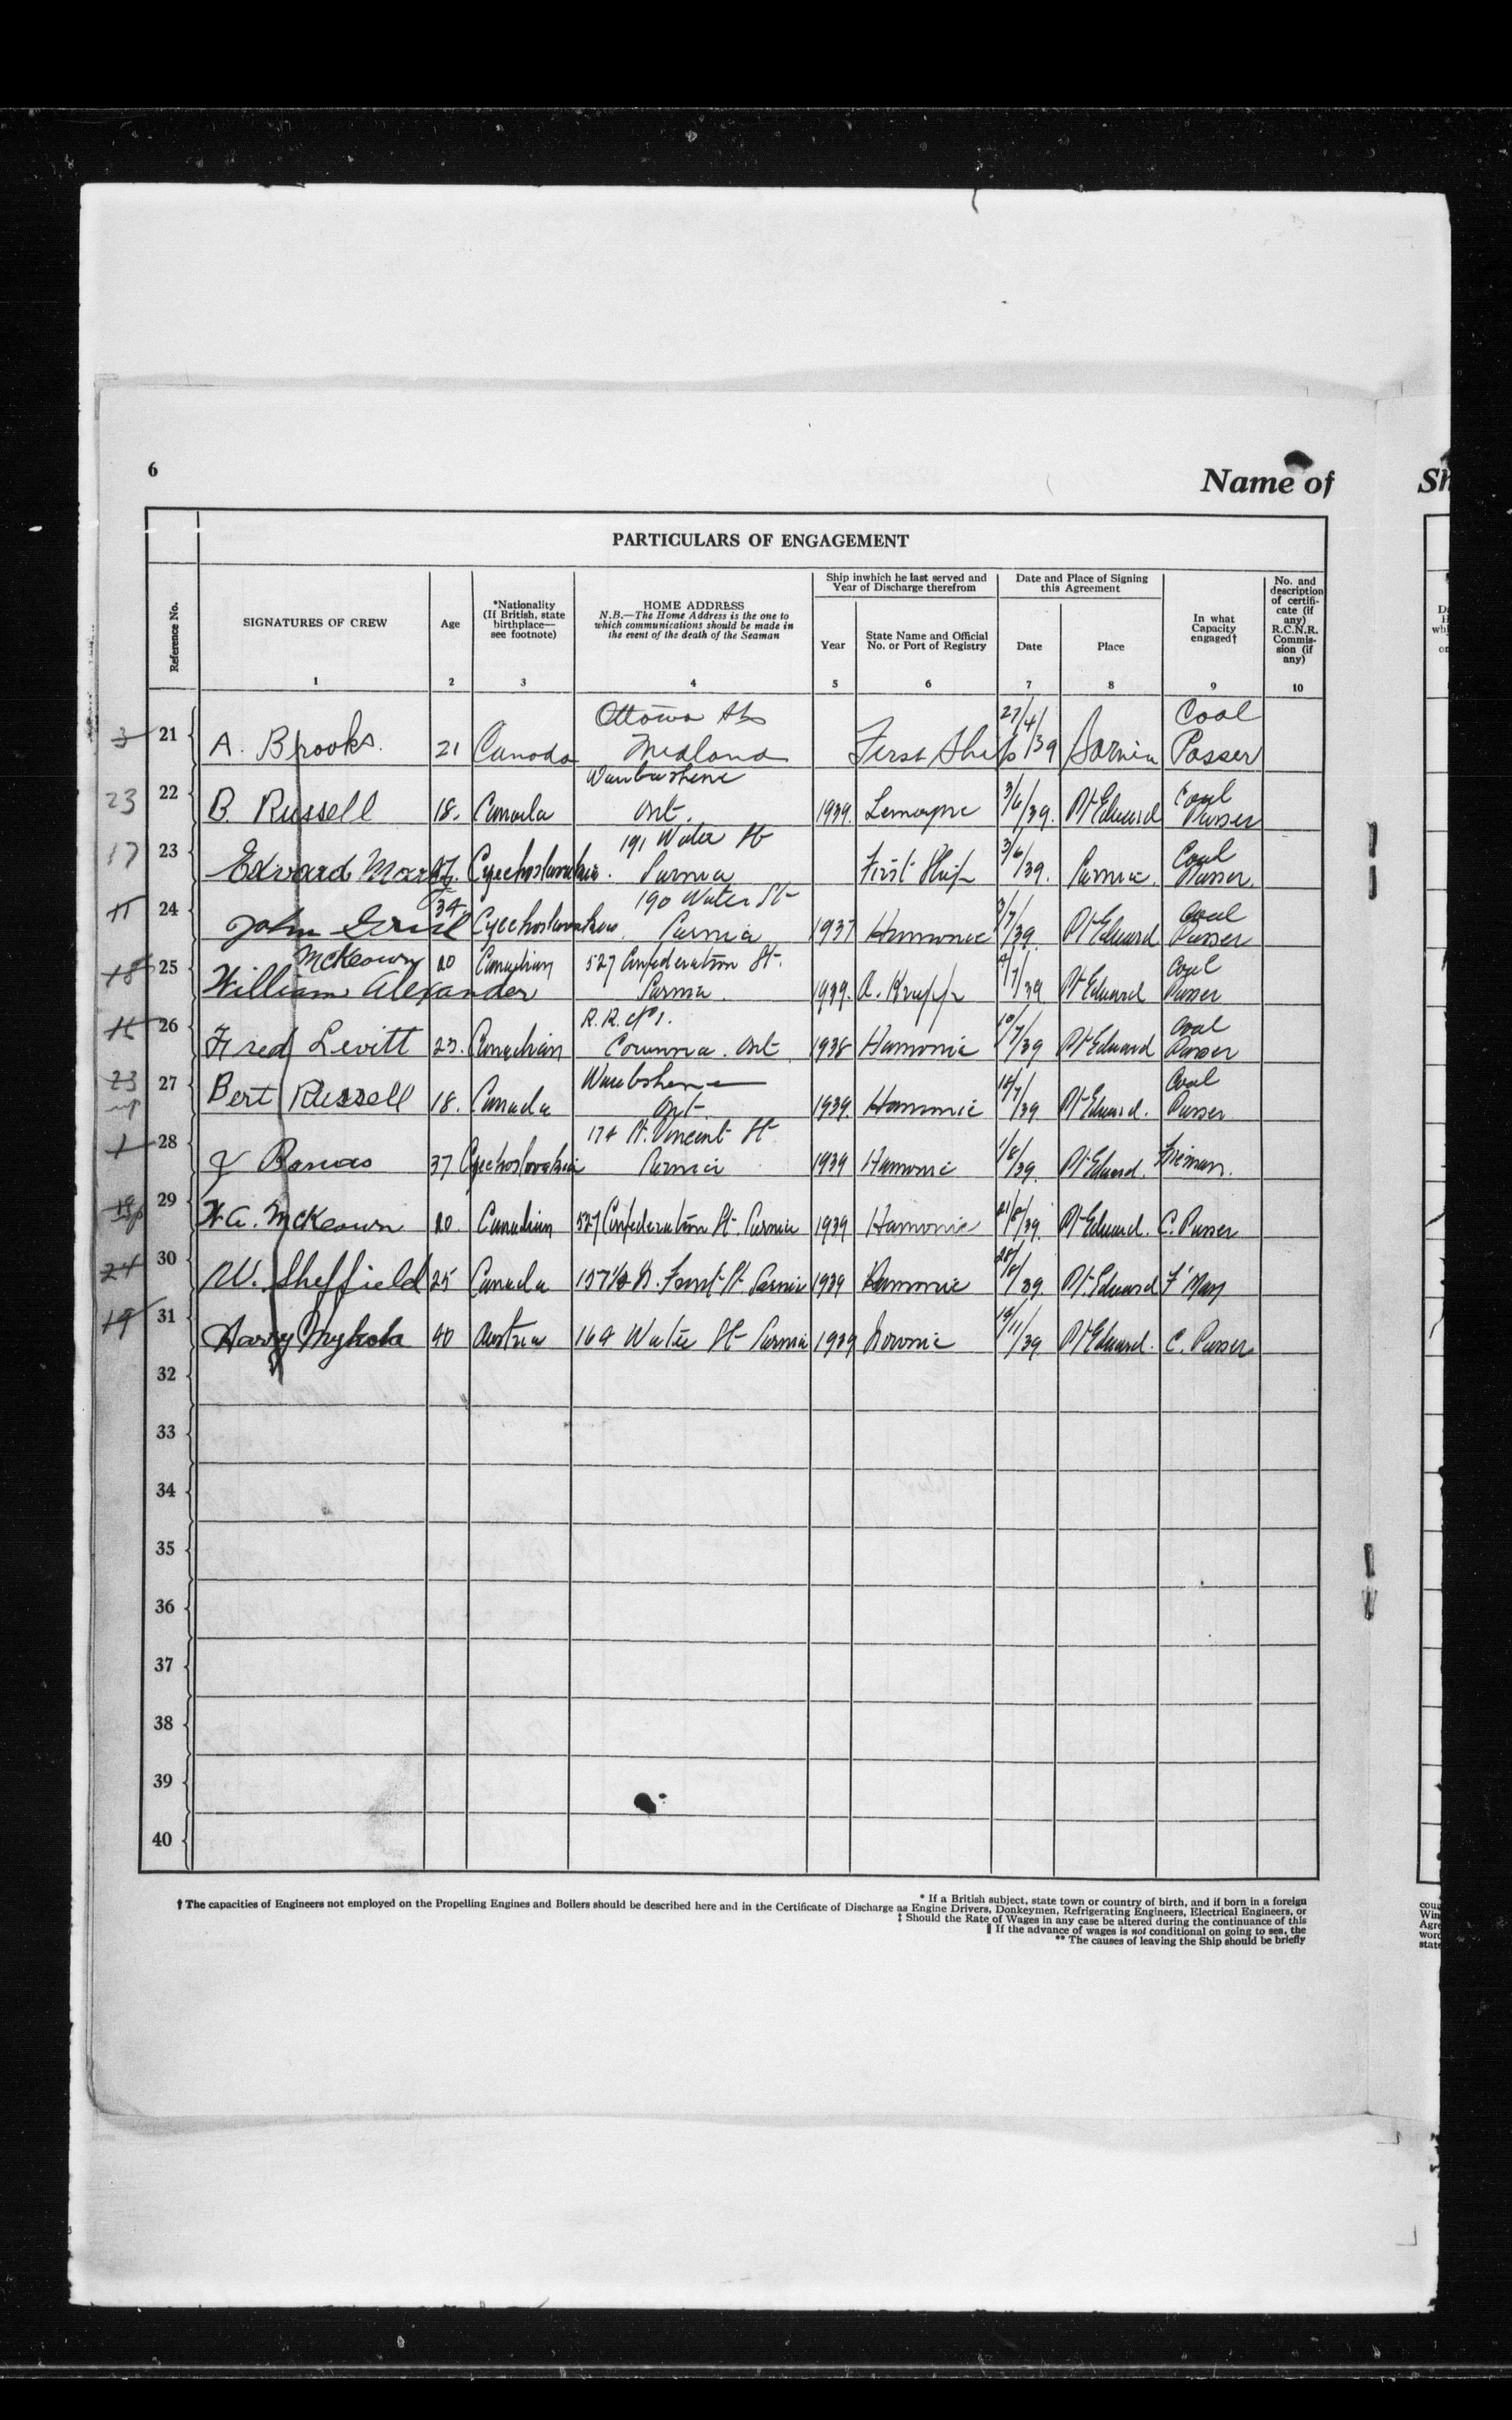 6
Name of
Sh
PARTICULARS OF ENGAGEMENT
Reference No.
SIGNATURES OF CREW
Age
*Nationality
(If British, state
birthplace—
see footnote)
HOME ADDRESS
N.B.—The Home Address is the one to
which communications should be made in
the event of the death of the Seaman
Ship inwhich he last served and
Year of Discharge therefrom
Year
State Name and Official
No. or Port of Registry
Date and Place of Signing
this Agreement
Date
Place
In what
Capacity
engaged†
No. and
description
of certifi-
cate (if
any)
R.C.N.R.
Commis-
sion (if
any)
1 2 3 4 5 6 7 8 9 10
Ottawa 27/4/ Coal
3 21 A. Brooks. 21 Canada Midland First Ship /39 Sarnia Passer
Waubashene Coal
23 22 B. Russell 18. Canada Ont. 1939. 3/6/39. Pt Edward Passer
191 Water St Coal
17 23 Edward Czechoslovakia. Sarnia First Ship 3/6/39. Sarnia. Passer.
34 190 Water St Coal
11 24 John Czechoslovakia. Sarnia 1937 Hamonic 3/7/39. Pt Edward Passer
McKeown 20 Canadian 527 Confederation St. Coal
18 25 William Alexander Sarnia. 1939. A. /7/39 Pt Edward Passer
R. R. No 1. Coal
26 Fred Levitt 23. Canadian Corunna. Ont. 1938 Hamonic 10/7/39 Pt Edward Passer
Waubshene Coal
23 27 Bert Russell 18. Canada Ont 1939 Hamonic /7/39 Pt Edward. Passer.
174 St. Vincent St
1 28 37 Czechoslovakia Sarnia 1939 Hamonic 1/8/39. Pt Edward. Fireman.
29 W. A. McKeown 20. Canadian 527 Confederation St. Sarnia 1939 Hamonic /39. Pt Edward. C. Passer
24 30 W. Sheffield 25 Canada 157½ N. Front St. Sarnia 1939 Hamonic /39. Pt. Edward F'Man
19 31 Harry Mykola 40 Austria 169 Water St Sarnia 1939 /11/39 Pt Edward. C. Passer
32
33
34
35
36
37
38
39
40
* If a British subject, state town or country of birth, and if born in a foreign
† The capacities of Engineers not employed on the Propelling Engines and Boilers should be described here and in the Certificate of Discharge as Engine Drivers, Donkeymen, Refrigerating Engineers, Electrical Engineers, or
‡ Should the Rate of Wages in any case be altered during the continuance of this
‖ If the advance of wages is not conditional on going to sea, the
** The causes of leaving the Ship should be briefly